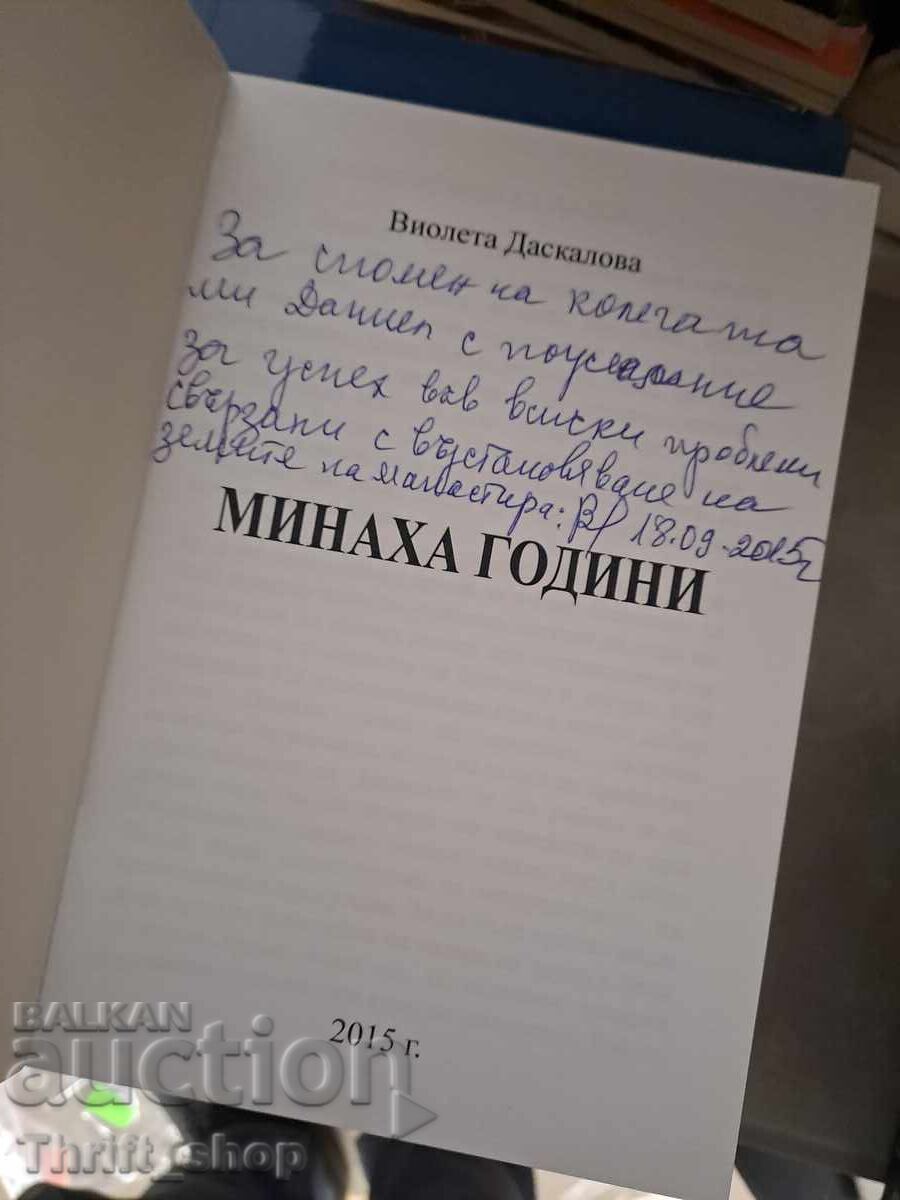 Виолета Даскалова
За спомен на колегата
ми Даниел с пожелание
за успех във всички проблеми
свързани с възстановяване на
земите на манастира: 18.09.2015г
МИНАХА ГОДИНИ
2015 г.
BALKAN
auction
Thrift_shop